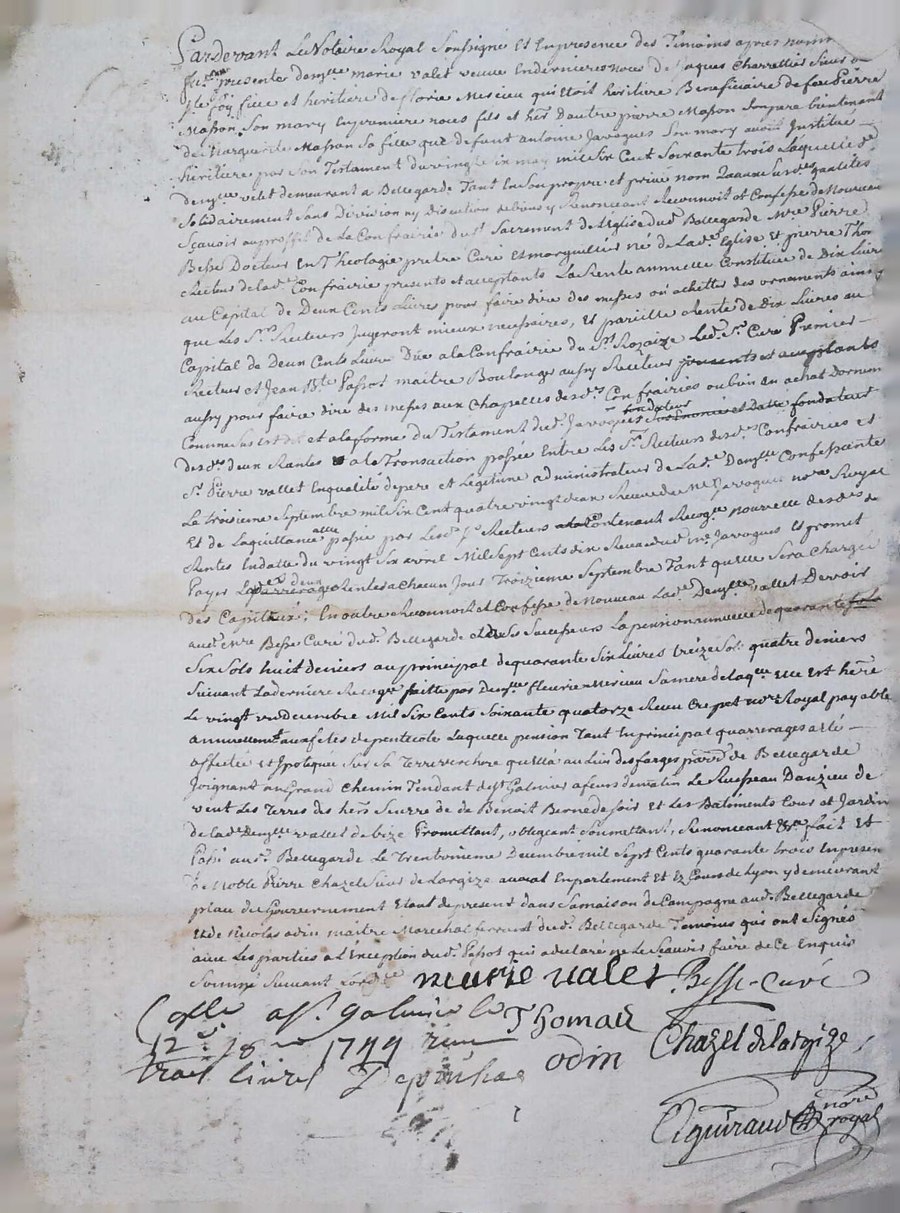 Pardevant Le Notaire Royal Soussigné Et En presence des Témoins apres nommés
fut presente demlle marie valet veuve En dernieres noces de Jacques Charretier Sieur de
fille et heritiere de florie Mesieu qui Etoit heritiere Beneficiaire de feu Pierre
Masson Son mary En premiere noces fils et her d'autre pierre Masson
de Marguerite Masson Sa fille que defunt antoine Javogues Son mary avoit Instituée
heritiere par Son Testament du vingt six may mil Six Cent Soixante trois Laquelle de
demlle valet demeurant a Bellegarde Tant En Son propre et privé nom qu'aux Susdes qualités
Solidairement Sans division ny discution de biens y Renonceant Reconnoit et Confesse de Nouveau
Sçavoir au proffit de La Confrairie du St Sacrement de L'eglise dud Bellegarde Mre Pierre
Besse Docteur En Théologie pretre Curé et marguillier né de Lade Eglise Et pierre Thomas
Recteur de lade Confrérie presents et acceptants La Rente annuelle Constituée de Dix Livres
au Capital de Deux Cents Livres pour faire dire des messes ou achetter des ornements ainsy
que Les Srs Recteurs Jugeront mieux necessaires, Et pareille Rente de Dix Livres au
Capital de Deux Cents Livres Due a la Confrairie du St Rozaire Led. Sr Curé Premier
Recteur et Jean Bte Papot maitre Boulanger aussy Recteur presents et acceptants
aussy pour faire dire des messes aux Chapelles desd. Confrairies ou bien En achat Dornem
Comme Il Est dit et a la forme du Testament dud. Javogues fondateur
desd. deux Rentes a la Transaction passée Entre Les Srs Recteurs desd. Confrairies et
Sr Pierre vallet En qualité de pere et Legitime administrateur de Lade Demlle Confessante
Le troisieme Septembre mil Six Cent quatre vingt Receue de Me Javogues nore Royal
Et de La quittance passée par Lesd. Srs Recteurs Contenant Recogn nouvelle desdes
Rentes En datte du vingt Six avril Mil Sept Cents dix Receue dud me Javogues Et promet
Payer Les deux Rentes a Chacun Jour Troizieme Septembre Tant quelle Sera Chargée
Des Capitaux; En outre Reconnoit et Confesse de Nouveau Lade Demlle vallet Devoir
aud. mre Besse Curé dud Bellegarde et a Ses Successeurs La pension annuelle de quarante
Six Sols huit deniers au principal de quarante Six Livres treize Sols quatre deniers
Suivant La derniere Recogn faitte par Demlle fleurie Mesieu Sa mere de laqlle Elle Est here
Le vingt un decembre Mil Six Cents Soixante quatorze Receu Crepet nore Royal payable
annuellemt aux fetes de pentecote Laquelle pension Tant En principal qu'arrerages a Eté
affectée et Ipotequée Sur Sa Terre verchere quelle a au Lieu des farges parsse de Bellegarde
Joignant au Grand Chemin Tendant de St Galmier a feurs de matin Le Ruisseau Danzieu de
vent Les Terres des hers Seurre de de Benoit Berne de soir Et Les Batiments Cour et Jardin
de lade Demlle vallet de bize Promettant, obligeant, Soumettant, Renonceant &a fait Et
Passé aud. Bellegarde Le trentunieme Decembre mil Sept Cents quarante trois En presen
de Noble Pierre Chazel Sieur de Largize avocat En parlement Et Ez Cours de Lyon y demeurant
place du Gouvernement Etant de present dans Sa maison de Campagne aud. Bellegarde
Et de Nicolas odin maitre Marechal ferrant dud. Bellegarde Temoins qui ont Signés
avec Les parties a l'Exception dud. Papot qui a declaré ne Le Scavoir faire de Ce Enquis
Sommé Suivant Lordce
marie valet Besse Curé
Colle a St galmier le Thomas
12e 1744 Receu odin Chazel de largize
trois livres Depinhac
Eiguiraud nore royal